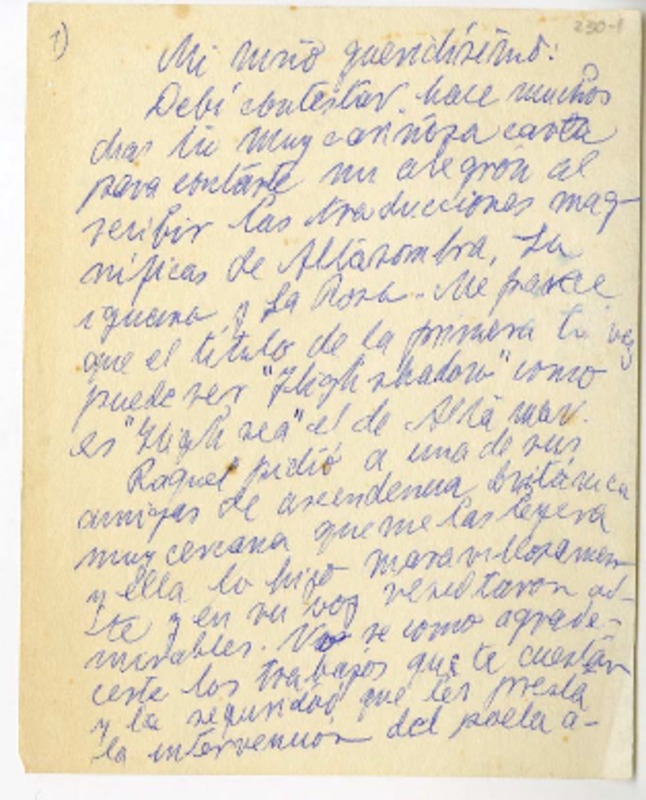 1)
230-1
Mi niño queridísimo:
Debí contestar hace muchos
dias tu muy cariñosa carta
para contarte mi alegrón al
recibir las traducciones mag-
níficas de Altasombra, La
iguana y La Rosa. Me parece
que el título de la primera tal vez
puede ser "High shadow" como
es "High sea" el de Alta mar.
Raquel pidió a una de sus
amigas de ascendencia británica
muy cercana que me las leyera
y ella lo hizo maravillosamen-
te y en su voz resultaron ad-
mirables. No se como agrade-
certe los trabajos que te cuestan
y la seguridad que les presta
la intervención del poeta a-